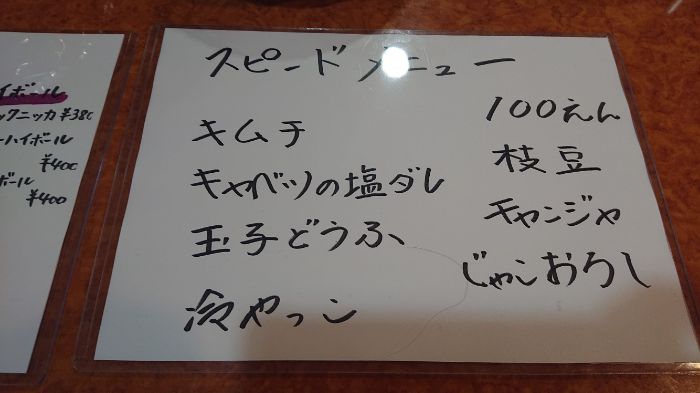 スピードメニュー
100えん
キムチ
キャベツの塩ダレ
玉子どうふ
冷やっこ
枝豆
チャンジャ
じゃこおろし
イボール
ックニッカ ¥380
ーハイボール
¥400
ボール
¥400